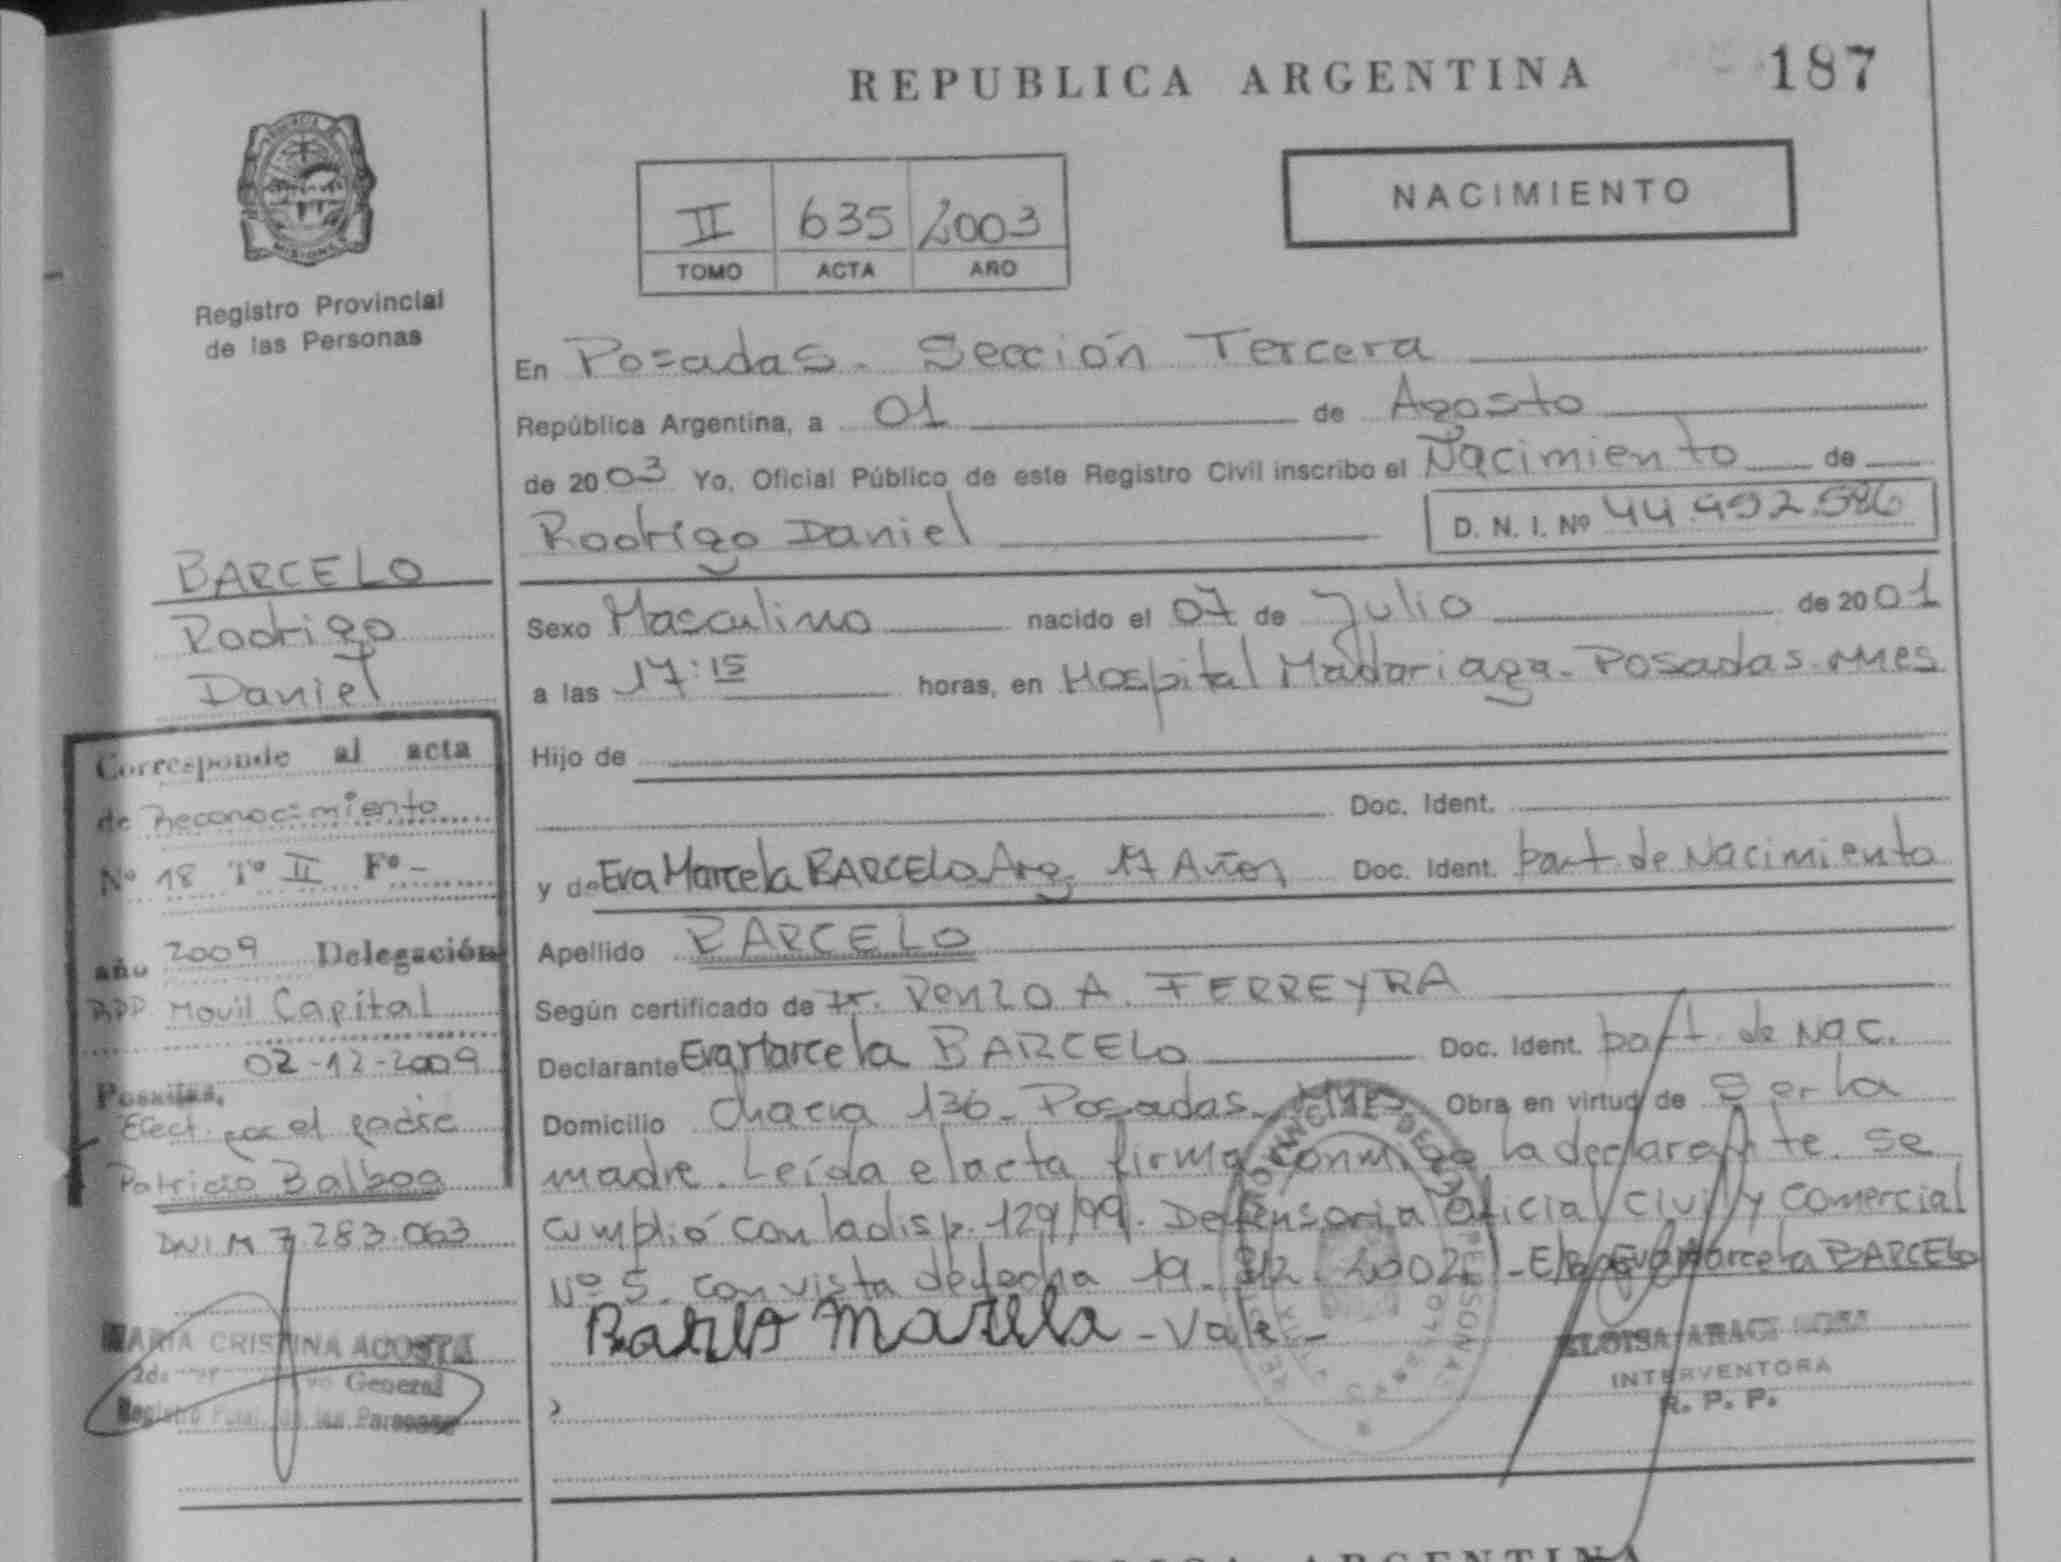 REPUBLICA ARGENTINA
187
NACIMIENTO
II 635 2003
TOMO ACTA AÑO
PROVINCIA DE
MISIONES
Registro Provincial
de las Personas
BARCELO
Rodrigo
Daniel
Corresponde al acta
de Reconocimiento
Nº 18 Tº II Fº -
año 2009 Delegación
RPP. Movil Capital
02-12-2009
Posadas,
Efect. por el padre
Patricio Balboa
DNI M 7.283.063
MARIA CRISTINA ACOSTA
General
Registro las Personas
En Posadas - Sección Tercera
República Argentina, a 01 de Agosto
de 2003 Yo, Oficial Público de este Registro Civil inscribo el Nacimiento de
Rodrigo Daniel D. N. I. Nº 44.492.586
Sexo Masculino nacido el 07 de Julio de 2001
a las 17:15 horas, en Hospital Madariaga - Posadas - Mnes
Hijo de
Doc. Ident.
y de Eva Marcela BARCELO Arg. 17 Años Doc. Ident. part. de Nacimiento
Apellido BARCELO
Según certificado de Dr. Renzo A. FERREYRA
Declarante Eva Marcela BARCELO Doc. Ident. part. de Nac.
Domicilio Chacra 136 - Posadas - Mnes Obra en virtud de Ser la
madre. Leída el acta firma conmigo la declarante. Se
cumplió con la disp. 129/99. Defensoria Oficial Civil y Comercial
Nº 5. con vista de fecha 19. 2002 - E/R Eva Marcela BARCELO
- Vale -
INTERVENTORA
R. P. P.
REPUBLICA ARGENTINA